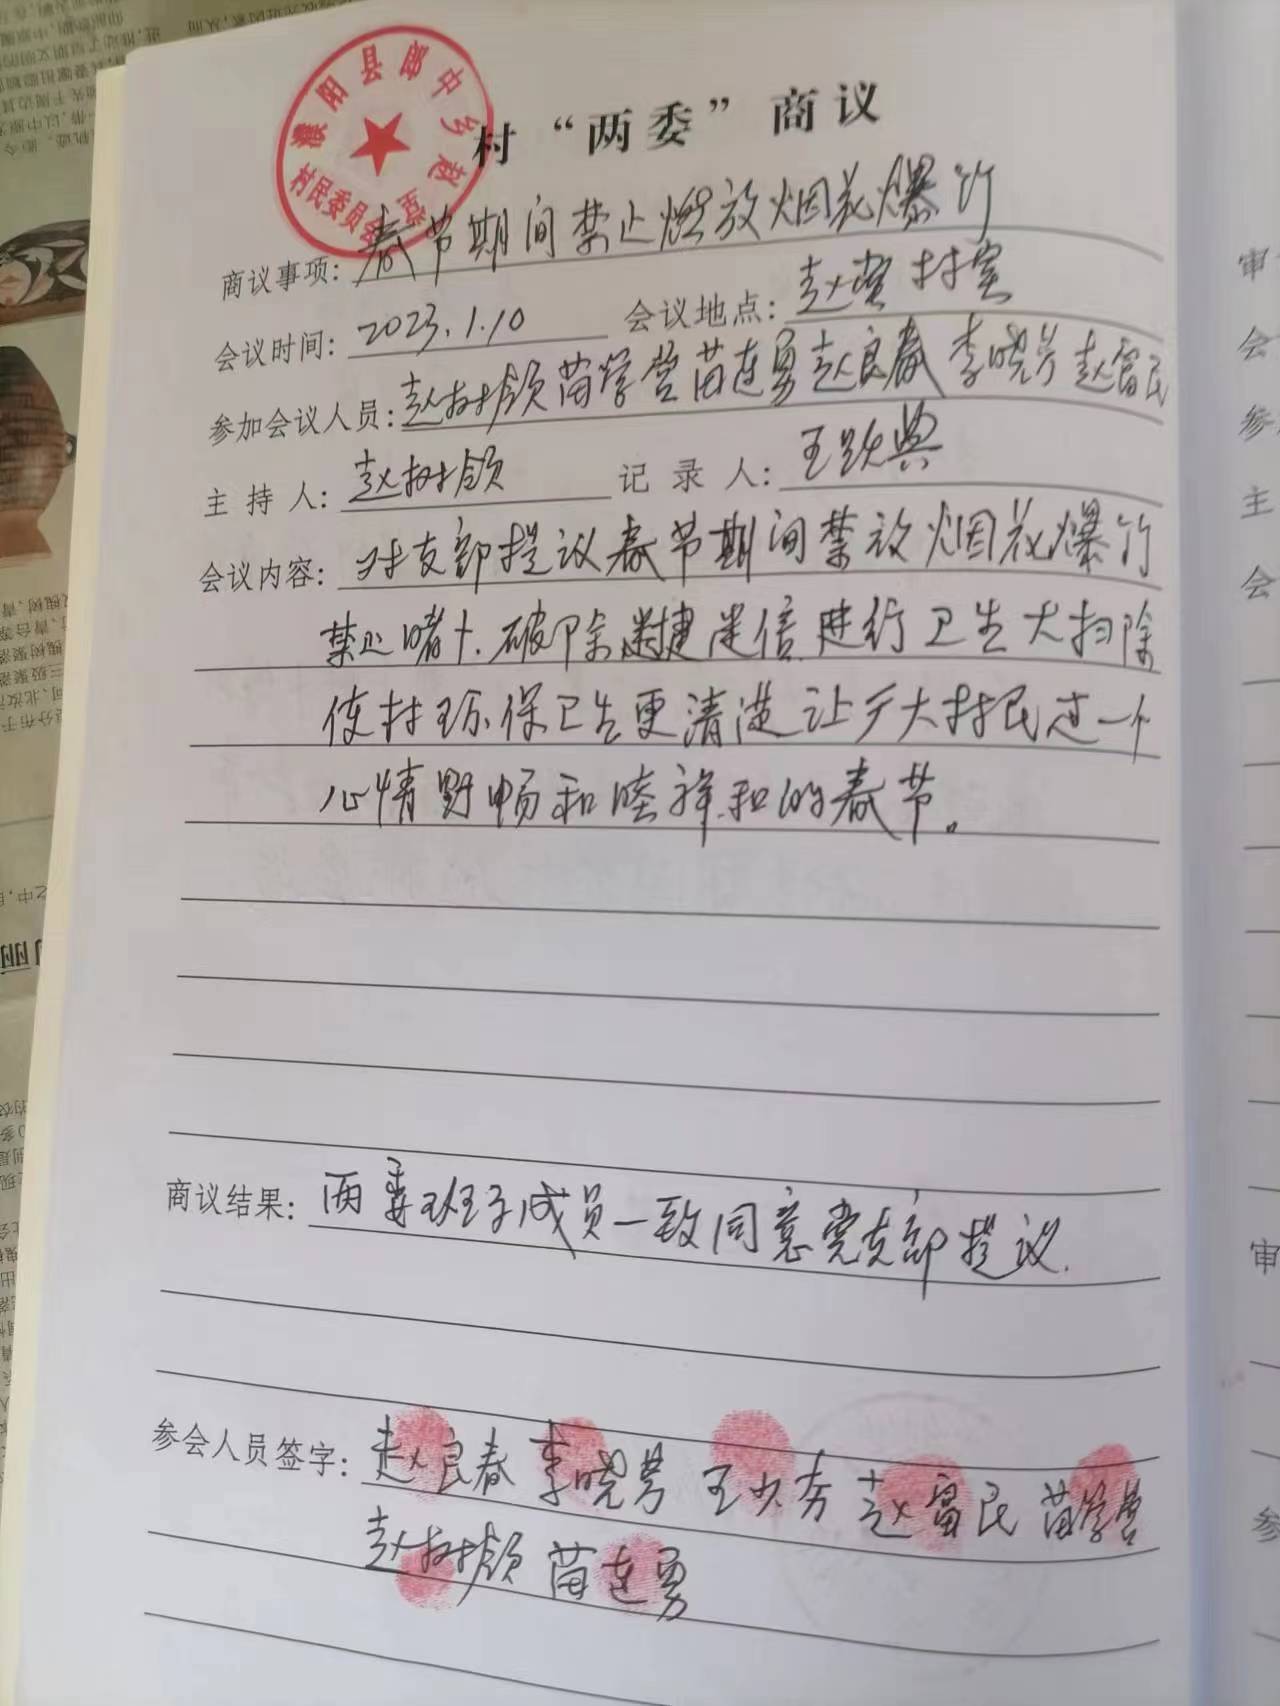 濮阳县郎中乡赵
村民委员会
村“两委”商议
商议事项：春节期间禁止燃放烟花爆竹
会议时间：2023.1.10 会议地点：赵寨村室
参加会议人员：赵树领 苗学营 苗连勇 赵良春 李晓芳 赵富民
主持人：赵树领 记录人：王跃典
会议内容：对支部提议春节期间禁放烟花爆竹
禁止赌卜.破除迷信进行卫生大扫除
使村环保卫生更清洁让广大村民过一个
心情野畅和睦祥和的春节。
商议结果：两委班子成员一致同意党支部提议.
参会人员签字：赵良春 李晓芳 赵富民 苗学营
赵树领 苗连勇